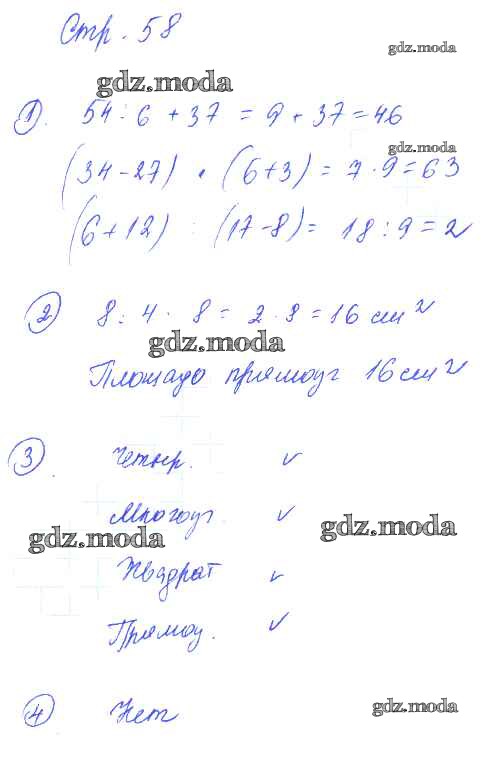 Стр. 58
gdz.moda
gdz.moda
1). 54 : 6 + 37 = 9 + 37 = 46
gdz.moda
(34 - 27) · (6 + 3) = 7 · 9 = 63
(6 + 12) : (17 - 8) = 18 : 9 = 2
2) 8 : 4 · 8 = 2 · 8 = 16 см²
gdz.moda
Площадь прямоуг 16 см²
3). Четыр. ✓
Многоуг. ✓
gdz.moda
gdz.moda
Квадрат ✓
Прямоу. ✓
4) Нет
gdz.moda